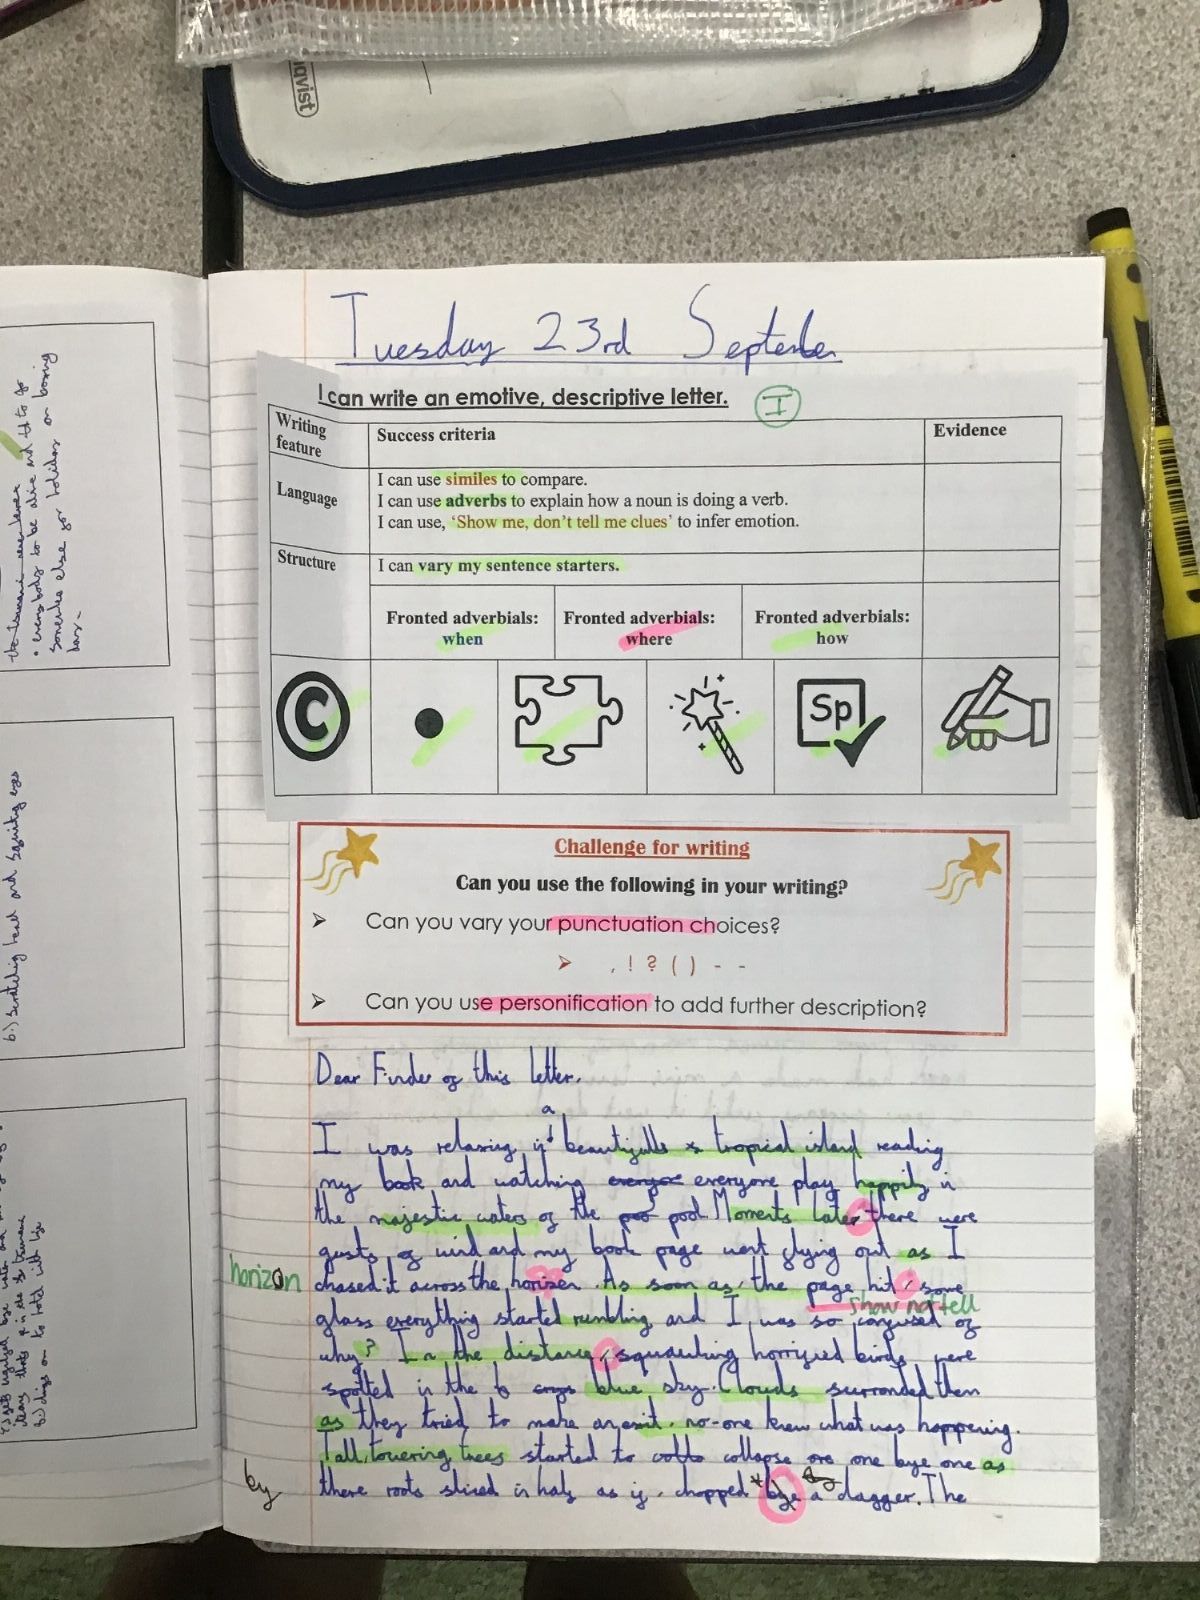 qvist
Tuesday 23rd September
I can write an emotive, descriptive letter.
I
Writing feature
Success criteria
Evidence
Language
I can use similes to compare.
I can use adverbs to explain how a noun is doing a verb.
I can use, 'Show me, don't tell me clues' to infer emotion.
Structure
I can vary my sentence starters.
Fronted adverbials: when
Fronted adverbials: where
Fronted adverbials: how
C
Sp
Challenge for writing
Can you use the following in your writing?
Can you vary your punctuation choices?
, ! ? ( ) - -
Can you use personification to add further description?
Dear Finder of this letter.
a
I was relaxing beautifulls tropical island reading
my book and watching everyone play happily in
the majestic waters of the pool. Moments later there were
gusts of wind and my book page went flying out as I
horizon
chased it across the horizen. As soon as, the page hit, some
show not tell
glass everything started rumbling and I was so confused of
why? In the distance, squawking horrified birds were
spotted in the blue sky. Clouds surronded them
as they tried to make an exit. no-one knew what was happening.
Tall, towering trees started to collapse one bye one as
by
there roots sliced in half as if chopped bye a dagger. The
everybody to be alive and to go
someone else for holiday or boxing
b.) scratching head and squinting eyes